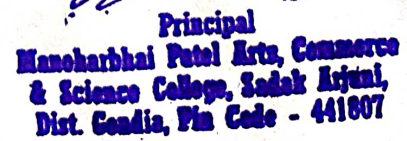 Principal
Manoharbhai Patel Arts, Commerce
& Science College, Sadak Arjuni,
Dist. Gondia, Pin Code - 441807